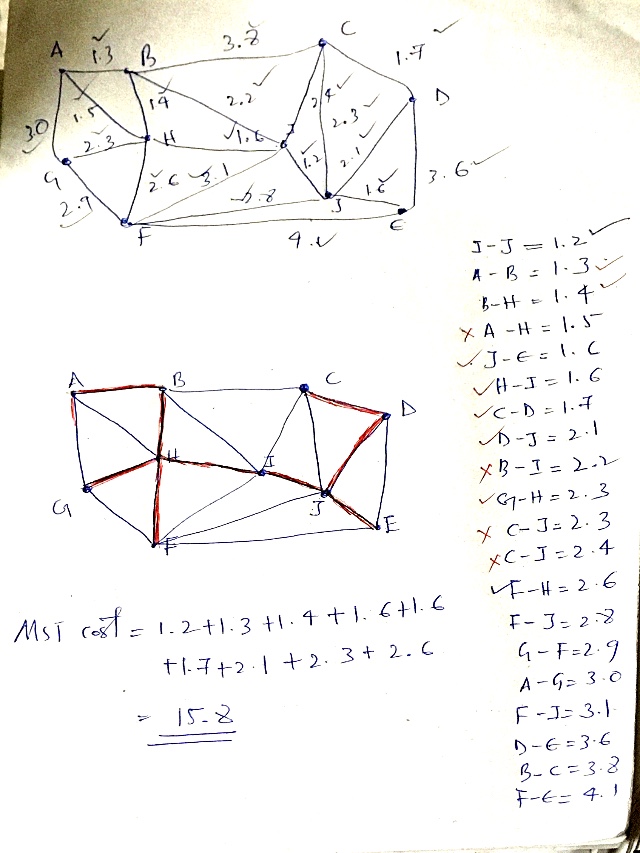 A 1.3 B 3.8 C
1.7
D
3.0 1.5 1.4 2.2 2.4 2.3
2.3 H 1.6 I 1.2 2.1
G 2.6 3.1 1.6 3.6
2.9 2.8 J
F 4.1 E
I-J = 1.2
A-B = 1.3
B-H = 1.4
A-H = 1.5
J-E = 1.6
H-I = 1.6
C-D = 1.7
D-J = 2.1
B-I = 2.2
G-H = 2.3
C-J = 2.3
C-I = 2.4
F-H = 2.6
F-J = 2.8
G-F = 2.9
A-G = 3.0
F-I = 3.1
D-E = 3.6
B-C = 3.8
F-E = 4.1
A B C
D
H I
G J E
F
MST cost = 1.2+1.3+1.4+1.6+1.6
+1.7+2.1+2.3+2.6
= 15.8